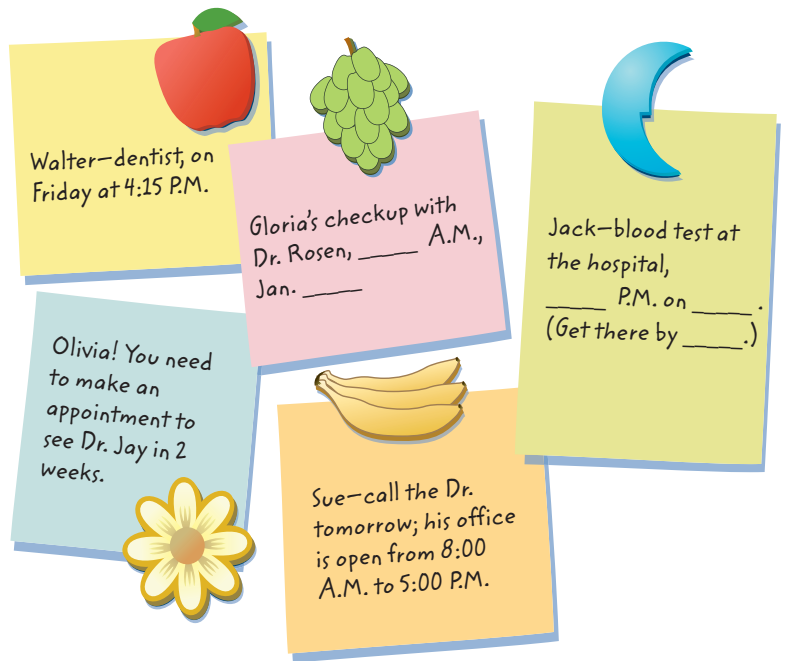 Walter—dentist, on
Friday at 4:15 P.M.
Gloria's checkup with
Dr. Rosen, _____ A.M.,
Jan. _____
Jack—blood test at
the hospital,
_____ P.M. on _____.
(Get there by _____.)
Olivia! You need
to make an
appointment to
see Dr. Jay in 2
weeks.
Sue—call the Dr.
tomorrow; his office
is open from 8:00
A.M. to 5:00 P.M.